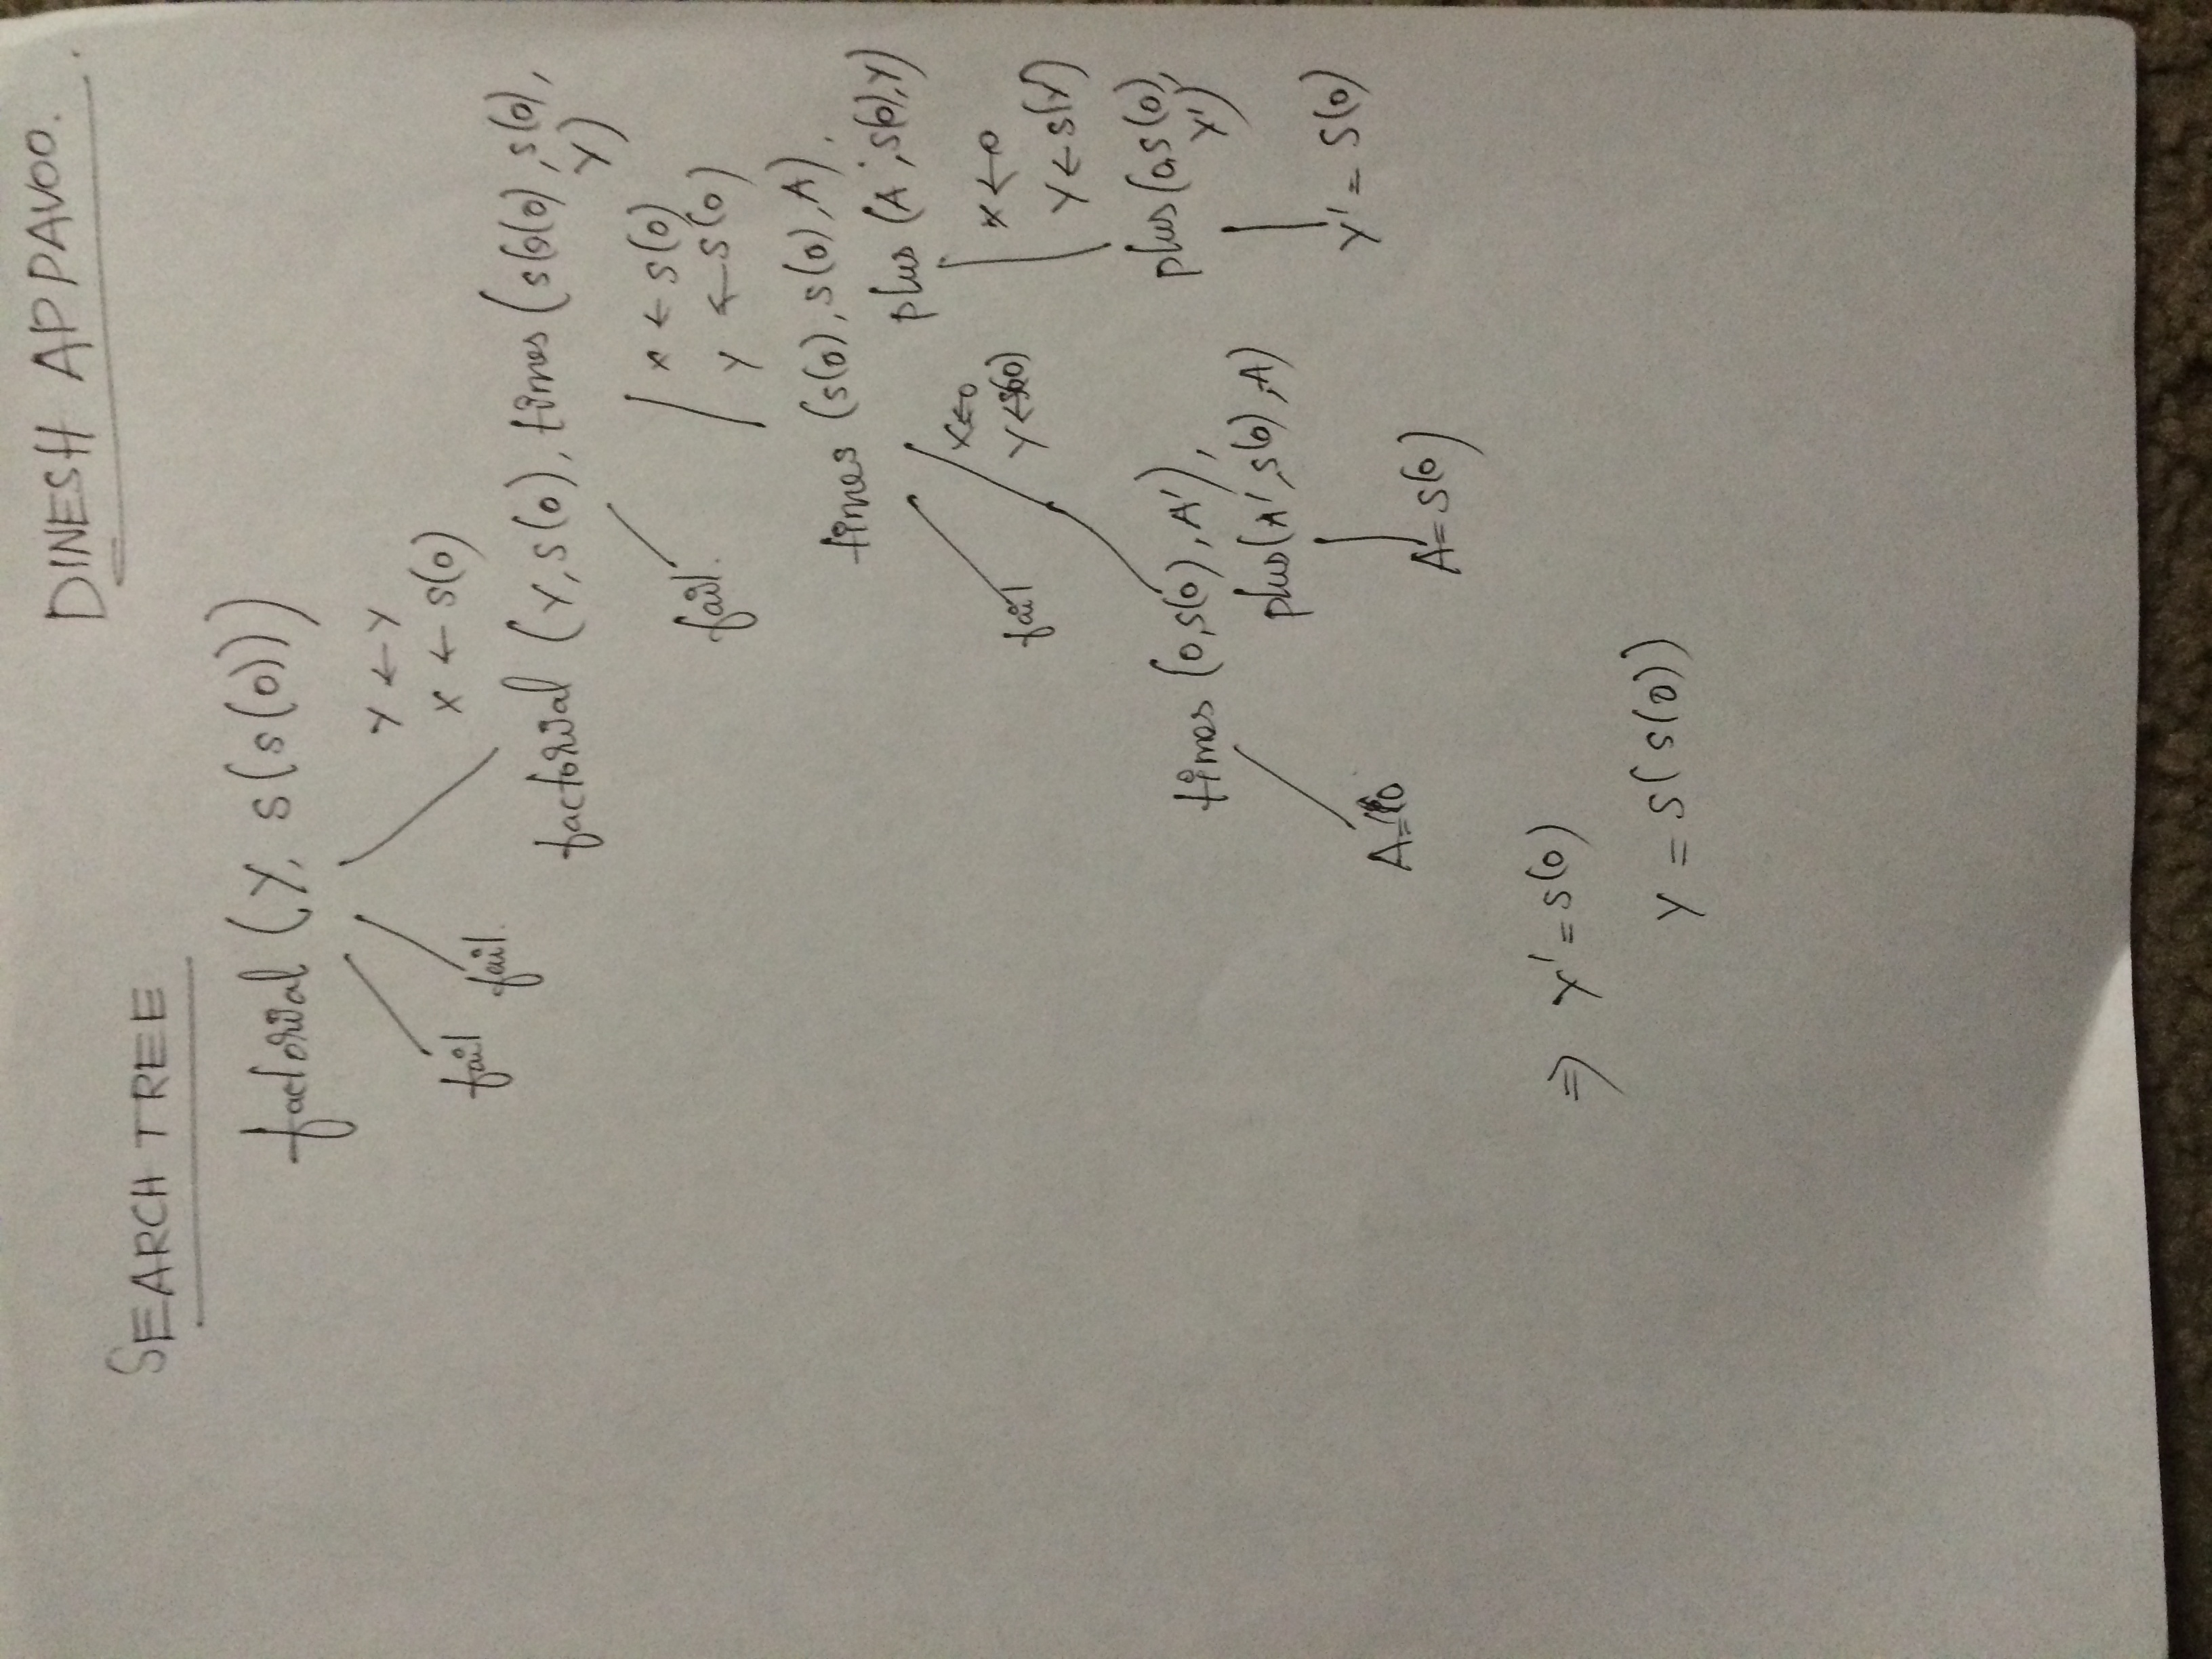 DINESH APPAVOO.
SEARCH TREE
factorial (Y, s(s(0)))
Y ← Y
X ← s(0)
fail
fail.
factorial (Y,s(0), times (s(s(0),s(0),
Y)
fail.
x ← s(0)
y ← s(0)
times (s(0),s(0),A),
plus (A,s(0),Y)
fail
X←0
Y←s(0)
x←0
Y←s(Y)
times (0,s(0),A'),
plus(0,s(0),
Y')
plus(A',s(0),A)
A=0
A=s(0)
Y'=s(0)
⇒ Y'=s(0)
Y = s(s(0))